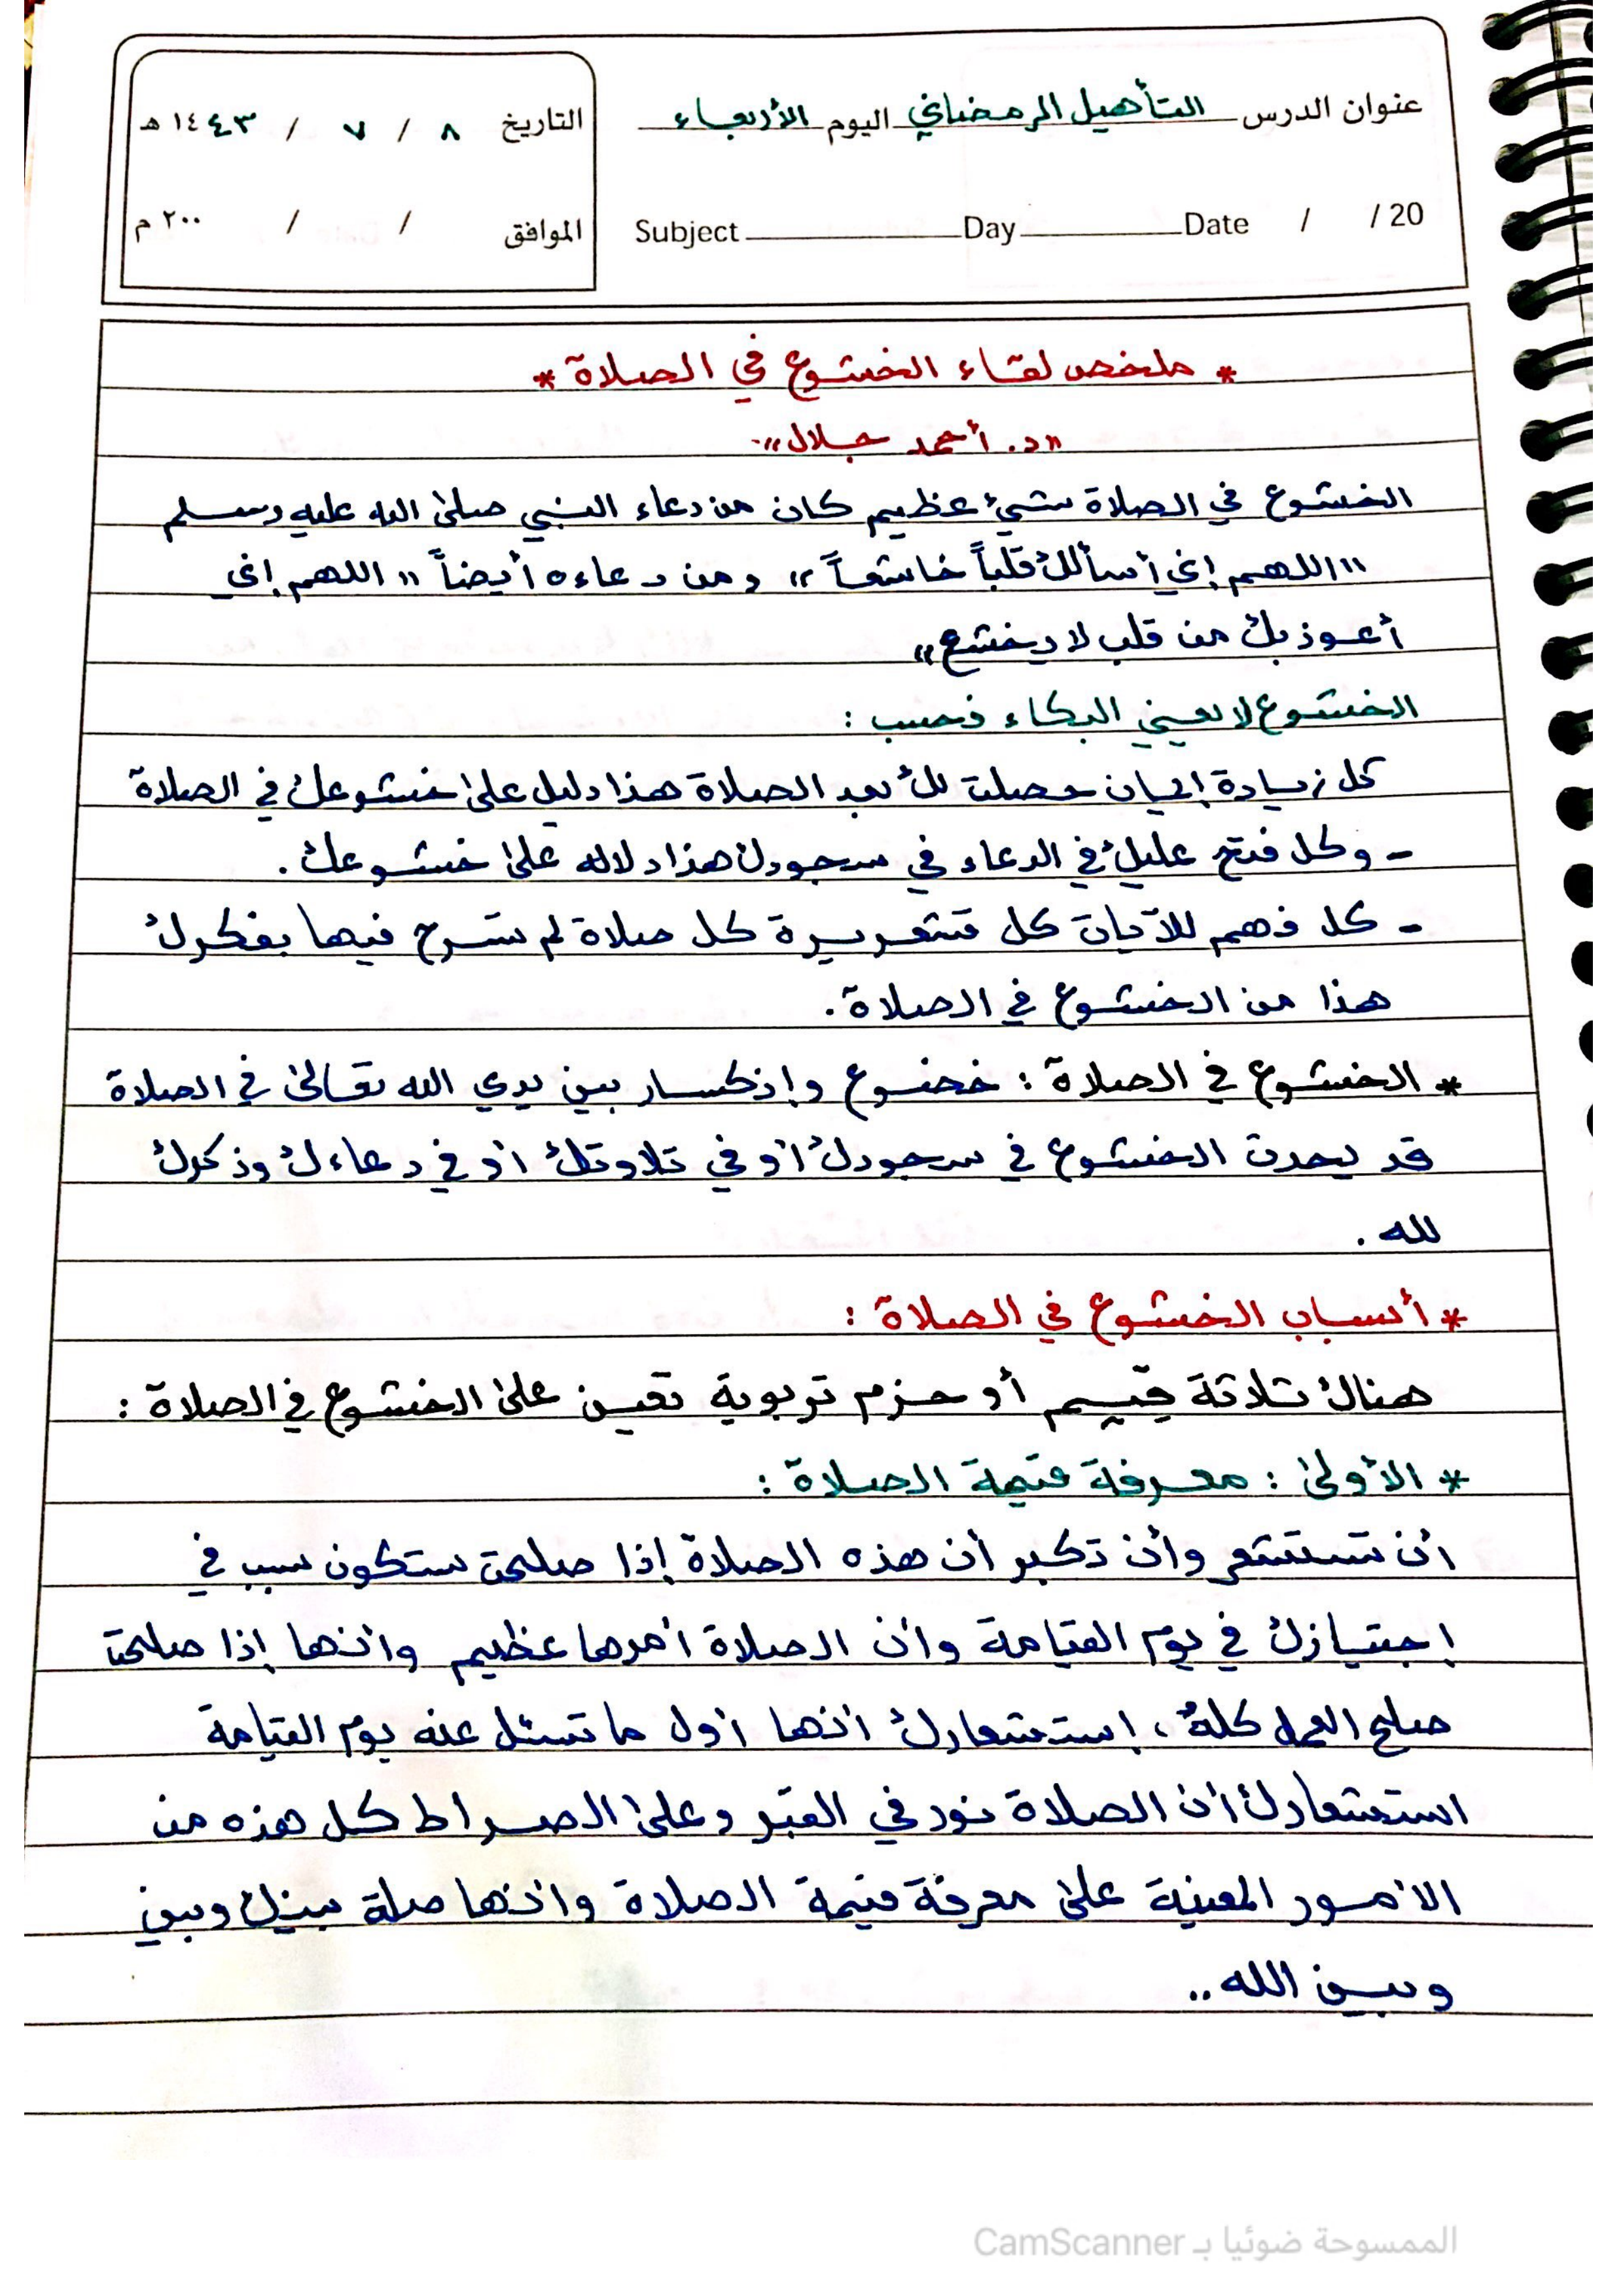 عنوان الدرس التأهيل الرمضاني اليوم الأربعاء
التاريخ ٨ / ٧ / ١٤٤٣ هـ
Subject Day Date / / 20
الموافق / / ٢٠٠ م
* ملخص لقاء الخشوع في الصلاة *
"د. أحمد جلال".
الخشوع في الصلاة شيء عظيم كان من دعاء النبي صلى الله عليه وسلم
"اللهم إني أسألك قلباً خاشعاً" ومن دعاءه أيضاً "اللهم إني
أعوذ بك من قلب لا يخشع"
الخشوع لا يعني البكاء فحسب :
كل زيادة إيمان حصلت لك بعد الصلاة هذا دليل على خشوعك في الصلاة
- وكل فتح عليك في الدعاء في سجودك هذا دلاله على خشوعك .
- كل فهم للآيات كل قشعريرة كل صلاة لم تسرح فيها بفكرك
هذا من الخشوع في الصلاة .
* الخشوع في الصلاة : خضوع وإنكسار بين يدي الله تعالى في الصلاة
قد يحدث الخشوع في سجودك أو في تلاوتك أو في دعاءك وذكرك
لله .
* أسباب الخشوع في الصلاة :
هناك ثلاثة قِيَم أو حزم تربوية تعين على الخشوع في الصلاة :
* الأولى : معرفة قيمة الصلاة :
أن تستشعر وأن تكبر أن هذه الصلاة إذا صلحت ستكون سبب في
إجتيازك في يوم القيامة وأن الصلاة أمرها عظيم وأنها إذا صلحت
صلح العمل كله ، إستشعارك أنها أول ما تسئل عنه يوم القيامة
استشعارك أن الصلاة نور في القبر وعلى الصراط كل هذه من
الأمور المعينة على معرفة قيمة الصلاة وأنها صلة بينك وبين
وبين الله ..
الممسوحة ضوئيا بـ CamScanner